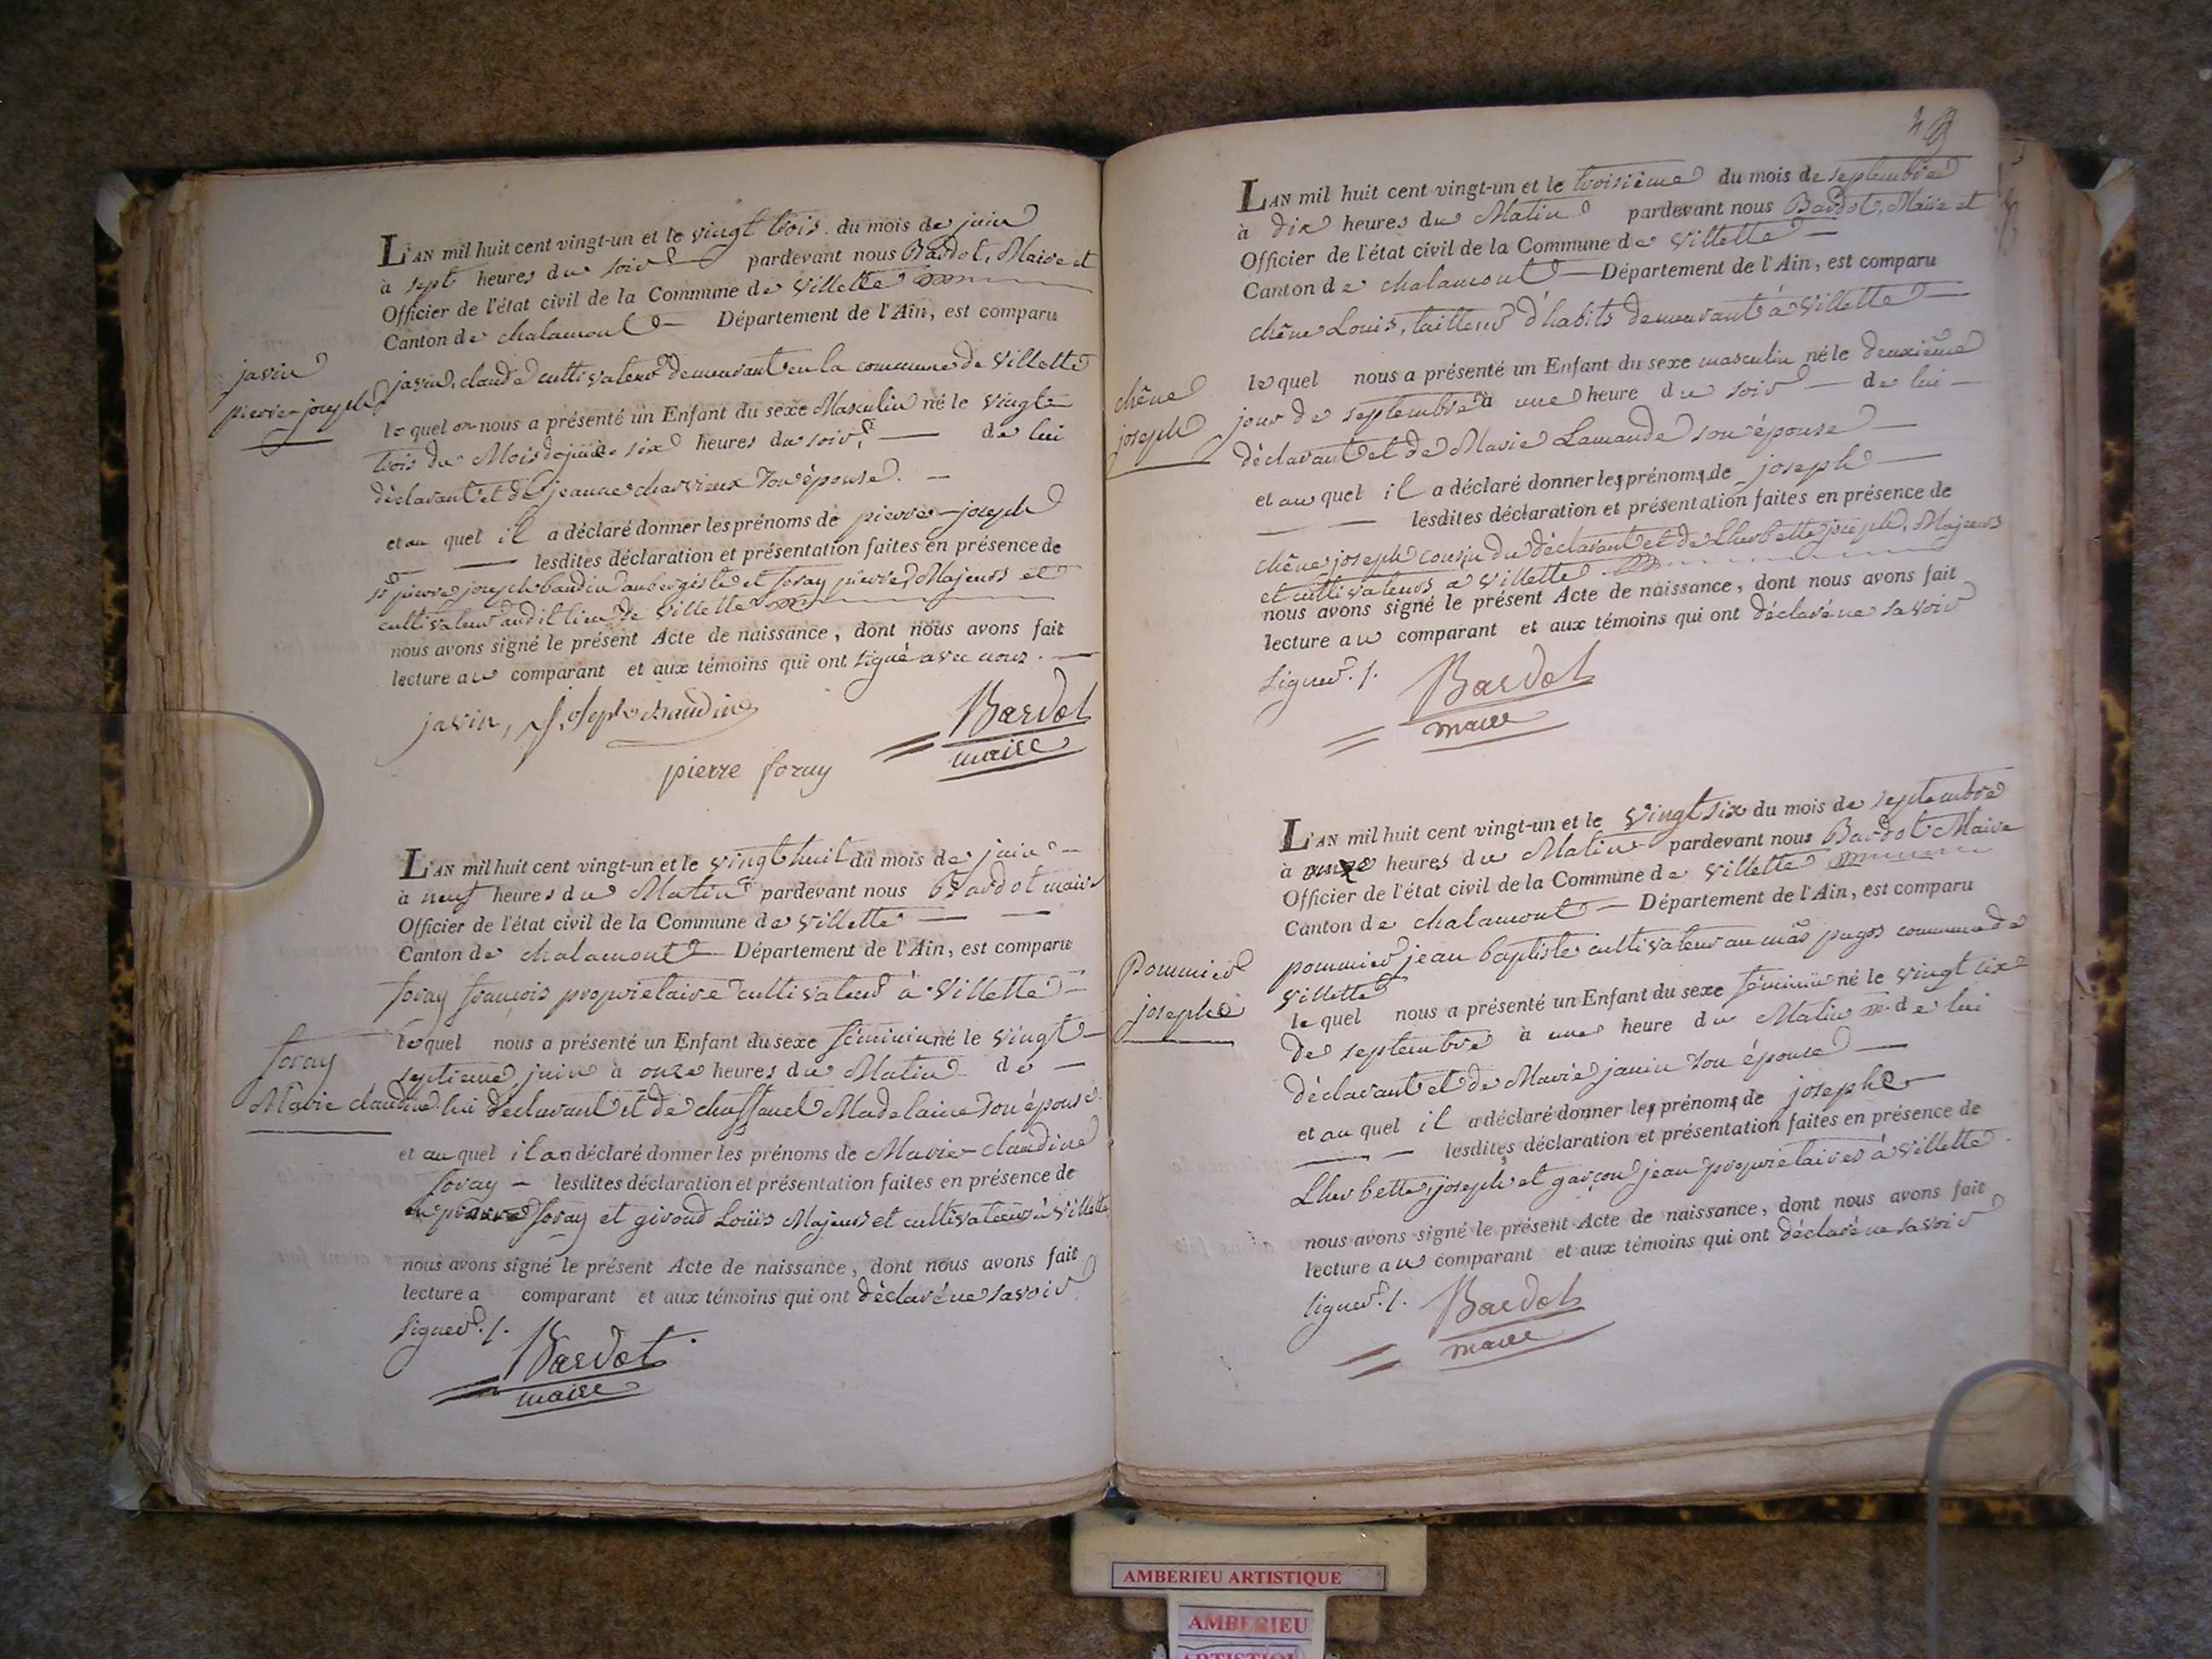 L'AN mil huit cent vingt-un et le vingt trois du mois de juin
à sept heures du soir pardevant nous Bardot, Maire et
Officier de l'état civil de la Commune de Villette
Canton de chalamont Département de l'Ain, est comparu
javin
pierre-joseph
javin, claude cultivateur demeurant en la commune de Villette
lequel nous a présenté un Enfant du sexe Masculin né le vingt
trois du Mois de juin à six heures du soir, de lui
déclarant et de jeanne charvieux son épouse.
et au quel il a déclaré donner les prénoms de pierre-joseph
lesdites déclaration et présentation faites en présence de
sr pierre joseph baudin aubergiste et foray pierre, Majeurs et
cultivateur audit lieu de Villette
nous avons signé le présent Acte de naissance, dont nous avons fait
lecture au comparant et aux témoins qui ont signé avec nous.
javin, Joseph baudin
Bardot
maire
pierre foray
L'AN mil huit cent vingt-un et le vingt huit du mois de juin
à neuf heures du Matin pardevant nous Bardot maire
Officier de l'état civil de la Commune de Villette
Canton de chalamont Département de l'Ain, est comparu
foray françois propriétaire cultivateur à Villette
foray
Marie claudine
lequel nous a présenté un Enfant du sexe féminin né le vingt
septieme juin à onze heures du Matin de
lui déclarant et de chaffanel Madelaine son épouse
et au quel il a déclaré donner les prénoms de Marie-claudine
foray lesdites déclaration et présentation faites en présence de
foray et giroud Louis Majeurs et cultivateurs à Villette
nous avons signé le présent Acte de naissance, dont nous avons fait
lecture a comparant et aux témoins qui ont déclaré ne savoir
signer./.
Bardot
maire
L'AN mil huit cent vingt-un et le troisième du mois de septembre
à dix heures du Matin pardevant nous Bardot, Maire et
Officier de l'état civil de la Commune de Villette
Canton de chalamont Département de l'Ain, est comparu
chêne Louis, tailleur d'habits demeurant à Villette
chêne
joseph
lequel nous a présenté un Enfant du sexe masculin né le deuxième
jour de septembre à une heure du soir de lui
déclarant et de Marie Lamande son épouse
et au quel il a déclaré donner les prénoms de joseph
lesdites déclaration et présentation faites en présence de
chêne joseph cousin du déclarant et de Lherbette joseph, Majeurs
et cultivateurs à Villette
nous avons signé le présent Acte de naissance, dont nous avons fait
lecture au comparant et aux témoins qui ont déclaré ne savoir
signer./.
Bardot
maire
L'AN mil huit cent vingt-un et le vingt six du mois de septembre
à onze heures du Matin pardevant nous Bardot Maire
Officier de l'état civil de la Commune de Villette
Canton de chalamont Département de l'Ain, est comparu
Pommier
josephe
pommier jean baptiste cultivateur au mas pugos commune de
Villette
lequel nous a présenté un Enfant du sexe féminin né le vingt six
de septembre à une heure du Matin de lui
déclarant et de Marie janin son épouse
et au quel il a déclaré donner les prénoms de josephe
lesdites déclaration et présentation faites en présence de
Lherbette, joseph et garçon jean propriétaires à Villette
nous avons signé le présent Acte de naissance, dont nous avons fait
lecture au comparant et aux témoins qui ont déclaré ne savoir
signer./.
Bardot
maire
AMBERIEU ARTISTIQUE
AMBERIEU
ARTISTIQU